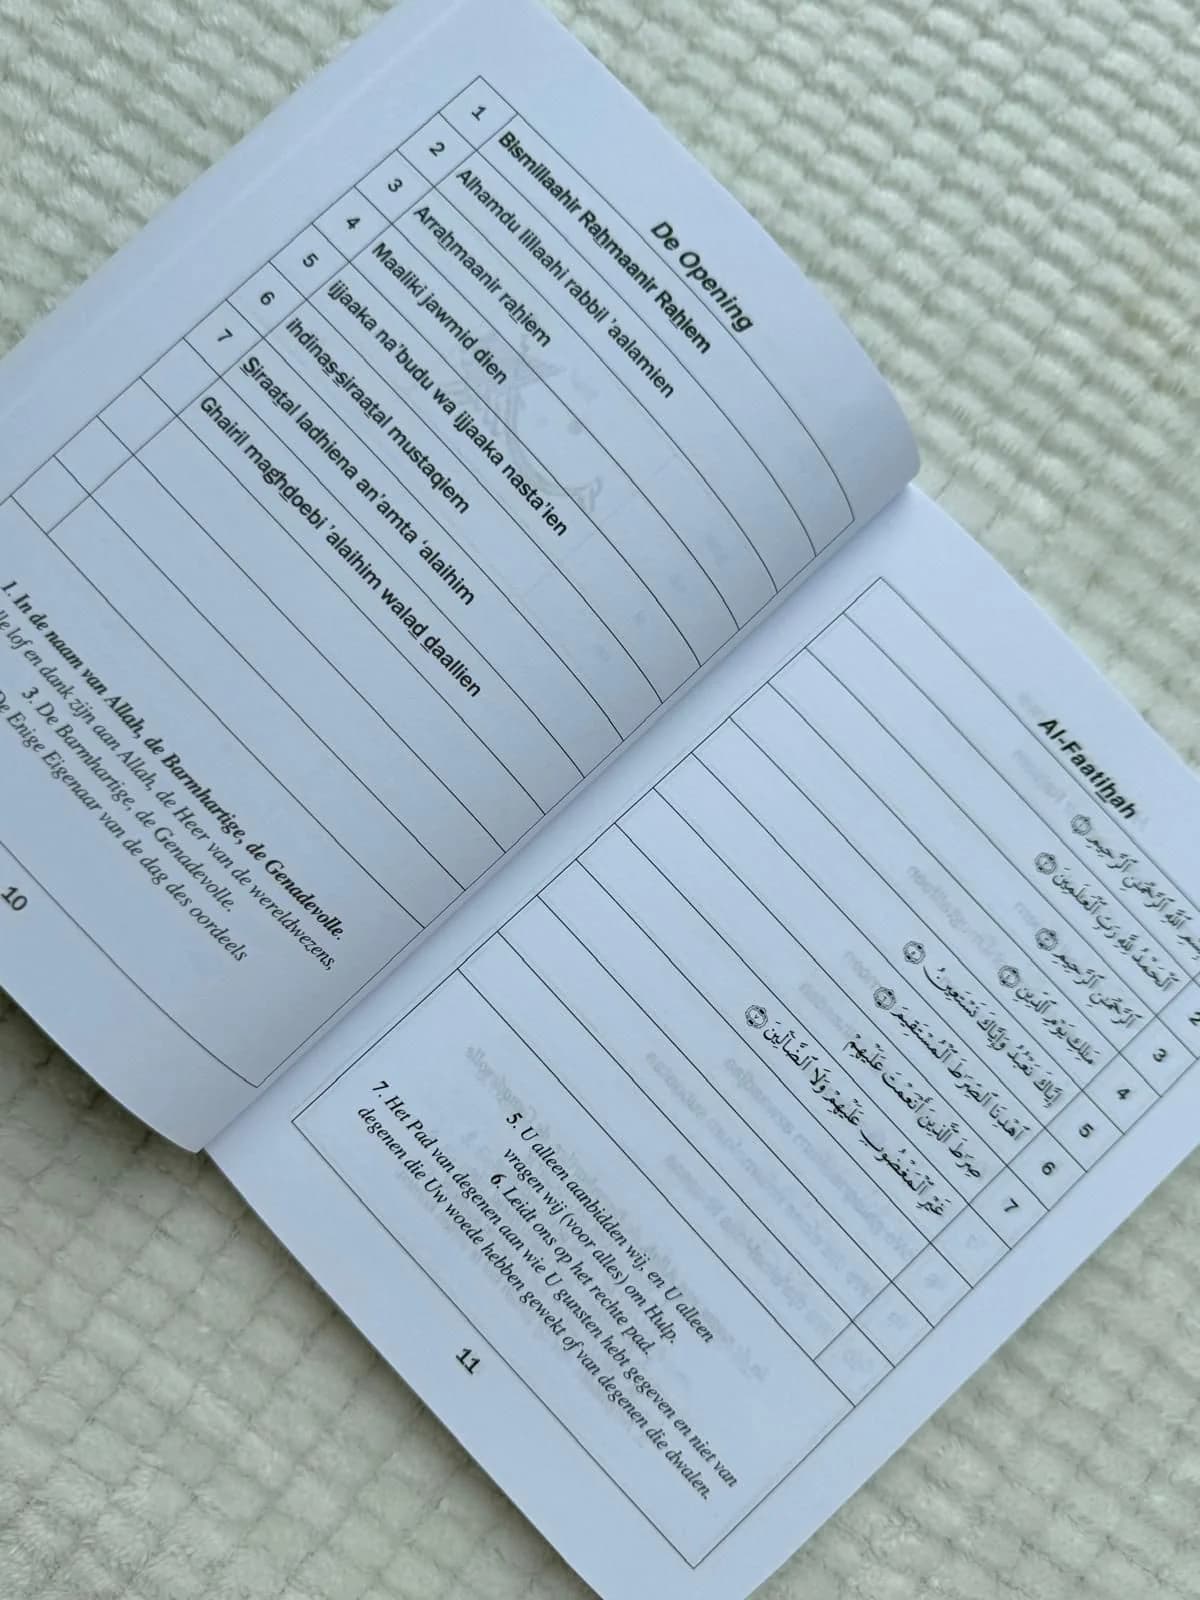 De Opening
1 Bismillaahir Rahmaanir Rahiem
2 Alhamdu lillaahi rabbil 'aalamien
3 Arrahmaanir rahiem
4 Maaliki jawmid dien
5 Ijjaaka na'budu wa ijjaaka nasta'ien
6 ihdinas-siraatal mustaqiem
7 Siraatal ladhiena an'amta 'alaihim
Ghairil maghdoebi 'alaihim walad daallien
1. In de naam van Allah, de Barmhartige, de Genadevolle.
lof en dank zijn aan Allah, de Heer van de wereldwezens,
3. De Barmhartige, de Genadevolle.
De Enige Eigenaar van de dag des oordeels
10
Al-Faatihah
ٱللَّهِ ٱلرَّحْمَٰنِ ٱلرَّحِيمِ ١
2 ٱلْحَمْدُ لِلَّهِ رَبِّ ٱلْعَٰلَمِينَ ٢
3 ٱلرَّحْمَٰنِ ٱلرَّحِيمِ ٣
4 مَٰلِكِ يَوْمِ ٱلدِّينِ ٤
5 إِيَّاكَ نَعْبُدُ وَإِيَّاكَ نَسْتَعِينُ ٥
6 ٱهْدِنَا ٱلصِّرَٰطَ ٱلْمُسْتَقِيمَ ٦
7 صِرَٰطَ ٱلَّذِينَ أَنْعَمْتَ عَلَيْهِمْ
غَيْرِ ٱلْمَغْضُوبِ عَلَيْهِمْ وَلَا ٱلضَّآلِّينَ ٧
5. U alleen aanbidden wij, en U alleen
vragen wij (voor alles) om Hulp.
6. Leidt ons op het rechte pad.
7. Het Pad van degenen aan wie U gunsten hebt gegeven en niet van
degenen die Uw woede hebben gewekt of van degenen die dwalen.
11